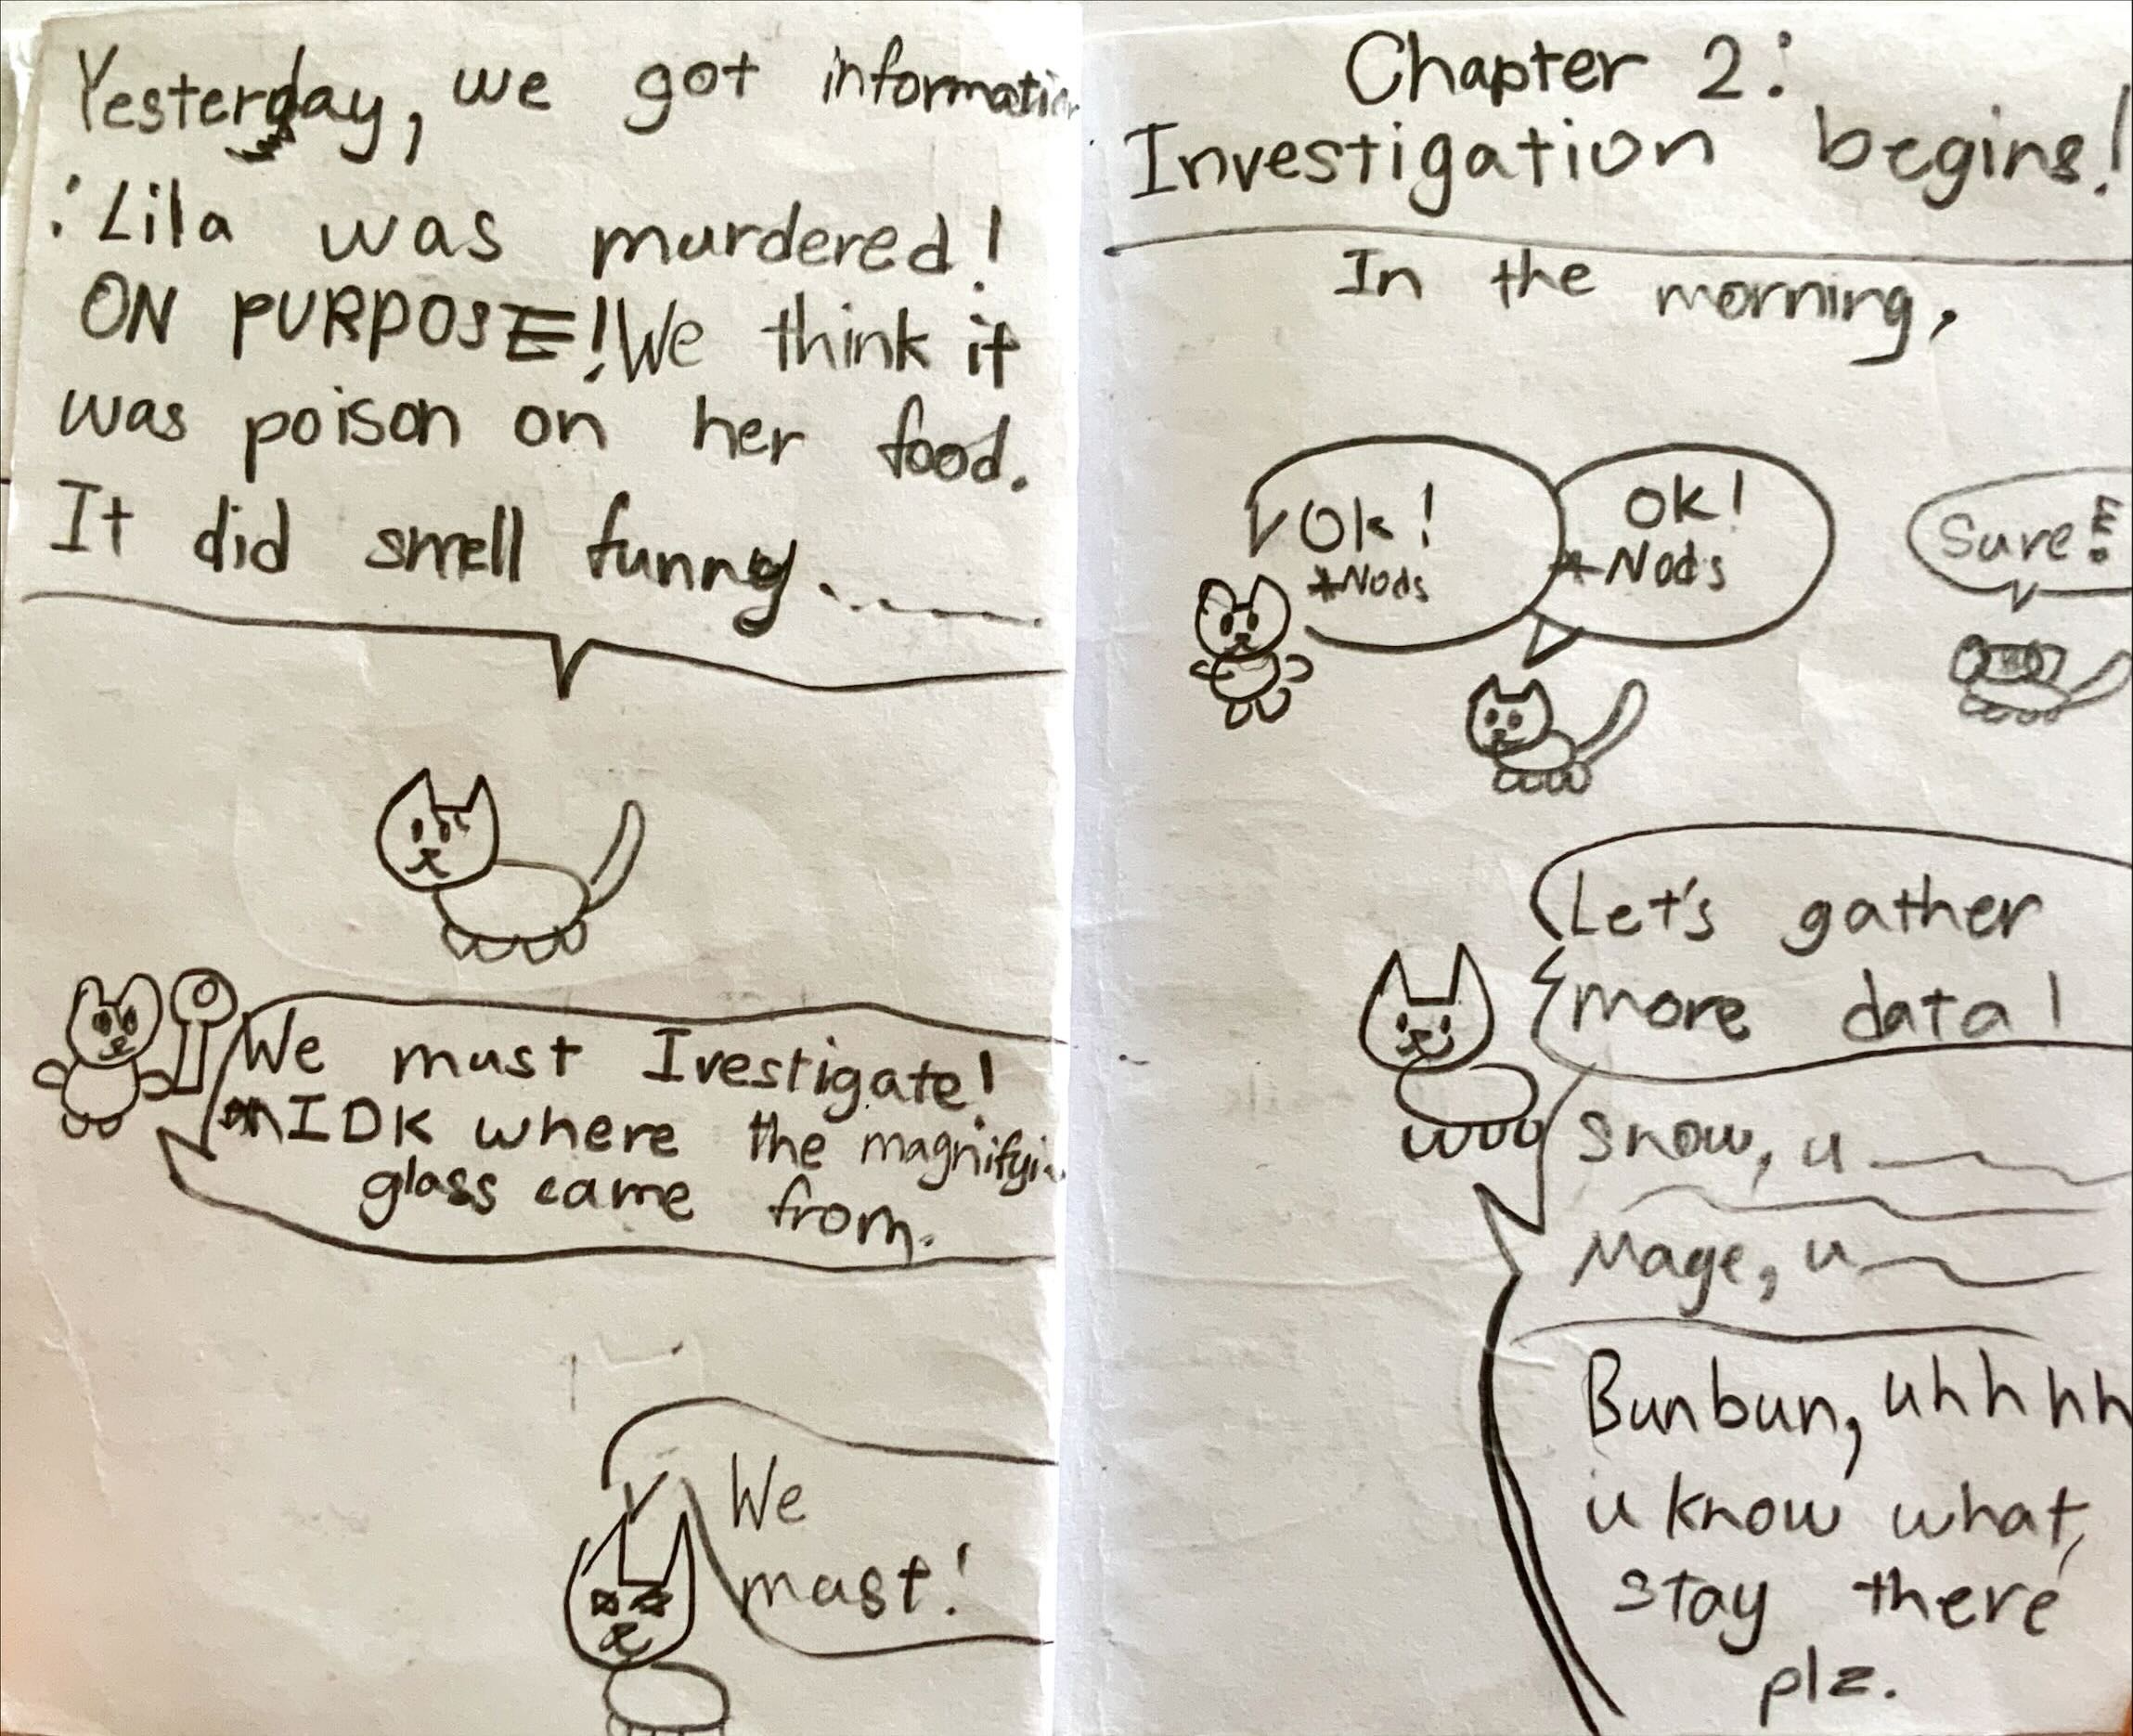 Yesterday, we got informatio
: Lila was murdered!
ON PURPOSE! We think it
was poison on her food.
It did smell funny.
We must Ivestigate!
IDK where the magnifyi
glass came from.
We
must!
Chapter 2:
Investigation begins!
In the morning,
Ok!
*Nods
Ok!
*Nods
Sure!
Let's gather
more data!
Snow, u
Mage, u
Bunbun, uhhhh
u know what,
stay there
plz.